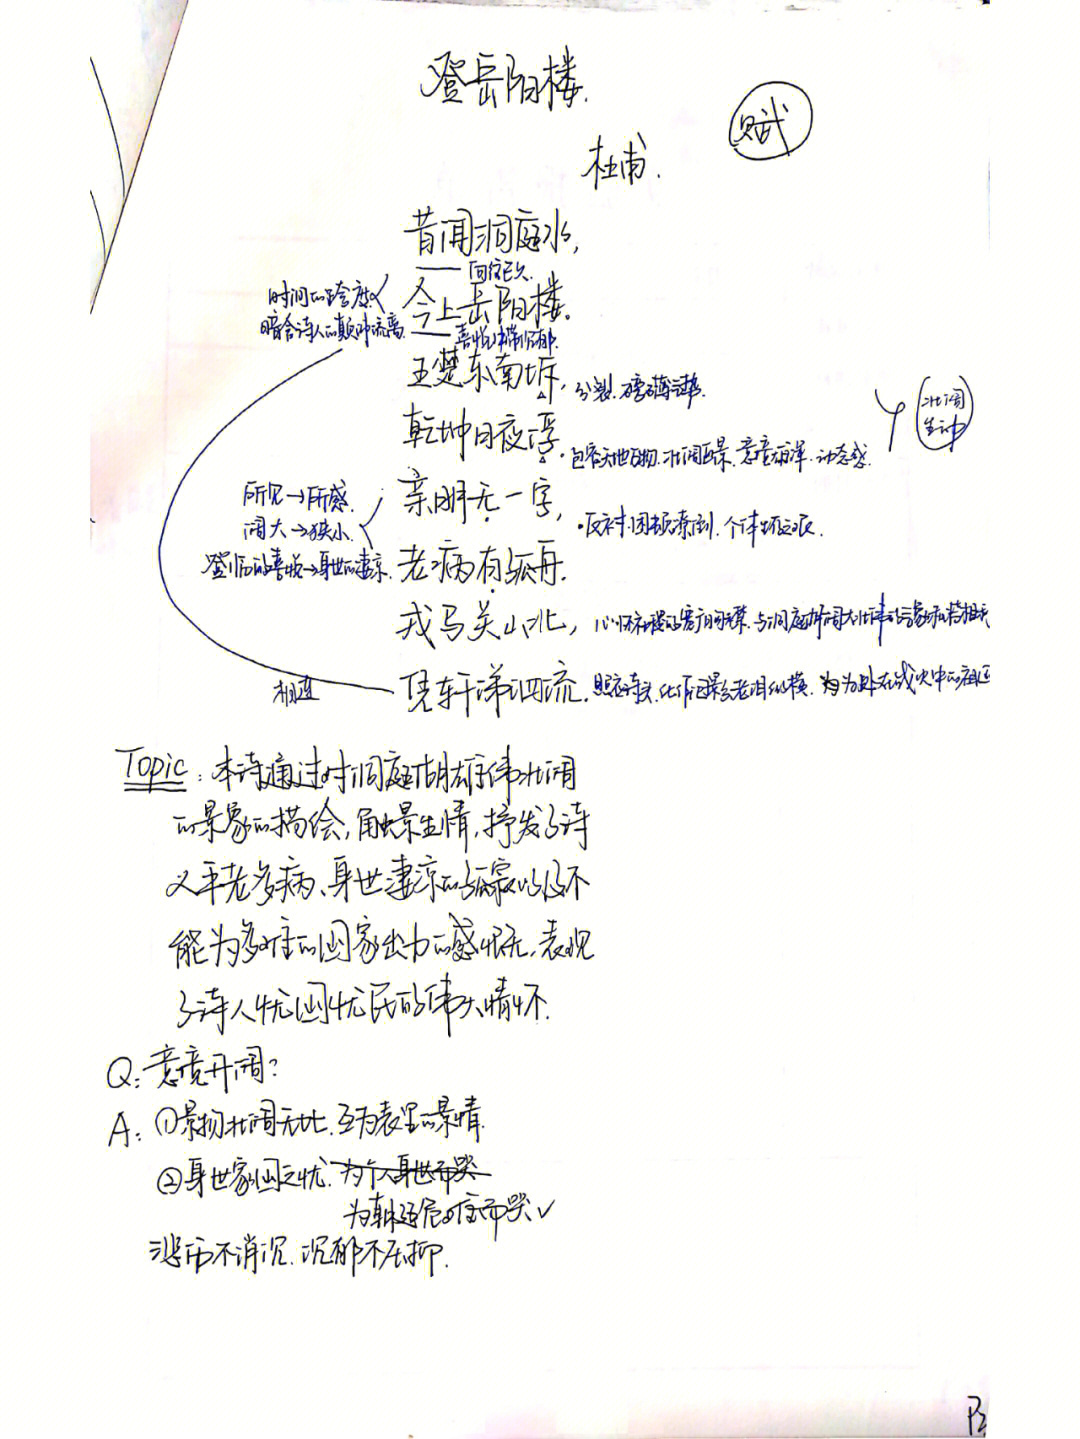 登岳阳楼.
赋
杜甫.
昔闻洞庭水,
向往已久.
时间的跨度
今上岳阳楼.
暗含诗人的颠沛流离.
喜悦中带沉郁.
吴楚东南坼,
分裂.磅礴
壮阔
生动
乾坤日夜浮.
包容天地万物.壮阔图景.意境.动态感.
所见→所感.
亲朋无一字,
阔大→狭小.
反衬.困顿潦倒.个体
登临的喜悦→身世的凄凉.
老病有孤舟.
戎马关山北,
心怀社稷的宽广胸襟.与洞庭湖阔大壮伟的
相连
凭轩涕泗流.
照应诗头.老泪纵横.为处在战火中的祖国
Topic:本诗通过对洞庭湖雄伟壮阔
的景象的描绘,触景生情,抒发了诗
人年老多病、身世凄凉的孤寂以及不
能为多难的国家出力的感慨,表现
了诗人忧国忧民的伟大情怀.
Q:意境开阔?
A:①景物壮阔无比.互为表里的景情
②身世家国之忧.为个人身世而哭
为朝廷危难而哭✓
悲而不消沉.沉郁不压抑.
P2